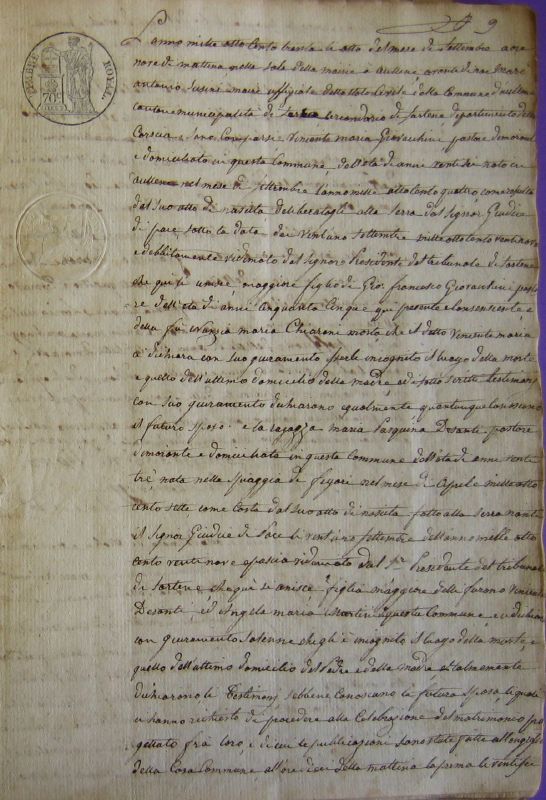 9
TIMBRE ROYAL
70c
L'anno mille otto cento trenta li otto del mese di Settembre a ore
nove di mattina nella sala della maire a Aullene avanti di noi
Antonio Susini maire uffiziale dello stato Civile della Commune d'Aullene
cantone municipalità di Serra circondario di Sartene departimento della
Corsica sono Comparsi Vincente Maria Giovachini pastore dimorante
e domiciliato in questa Commune, dell'età di anni venti sei nato in
Aullene nel mese di Settembre l'anno mille otto cento quattro, come risulta
dal suo atto di nascita deliberatogli alla Serra dal Signor Giudice
di pace sotto la data dei vent'uno Settembre mille otto cento ventinove
e debbitamente vidimato dal Signore Presidente del tribunale di Sartene
che qui si unisce, maggiore figlio di Gio: Francesco Giovachini pasto
re dell'età di anni cinquanta cinque qui presente e consenziente e
della fù Maria Chiaroni morta che il detto Vincente Maria
dichiara con suo giuramento esserle incognito il luogo della morte
e quello dell'ultimo domicilio della madre, ed i sotto scritti testimonj
con suo giuramento dichiarano egualmente quantunque conoscono
il futuro sposo. e la ragazza Maria Pasquina Desanti pastore
dimorante e domiciliata in questa Commune dell'età di anni vente
trè, nata nella spiaggia di Figari nel mese di Aprile mille otto
cento sette come Costa dal suo atto di nascita fatto alla Serra nanti
il Signor Giudice di Pace li vent'uno Settembre dell'anno mille otto
cento vente nove e poscia vidimato dal Sr. Presidente del tribunale
di Sartene che quì si unisce figlia maggiore delli furono Vincente
Desanti, ed Angela Maria Martini di questa Commune, e dichiara
con giuramento solenne che gli è incognito il luogo della morte, e
quello dell'ultimo domicilio del Padre e della madre e talmente
dichiarono li Testimonj, sebbene conoscano la futura sposa, li quali
ci hanno richiesto di procedere alla Celebrazione del matrimonio pro
gettato frà loro, e di cui le publicazioni sono state fatte all'
della Casa Commune all'ore dieci della mattina la prima li venti sei